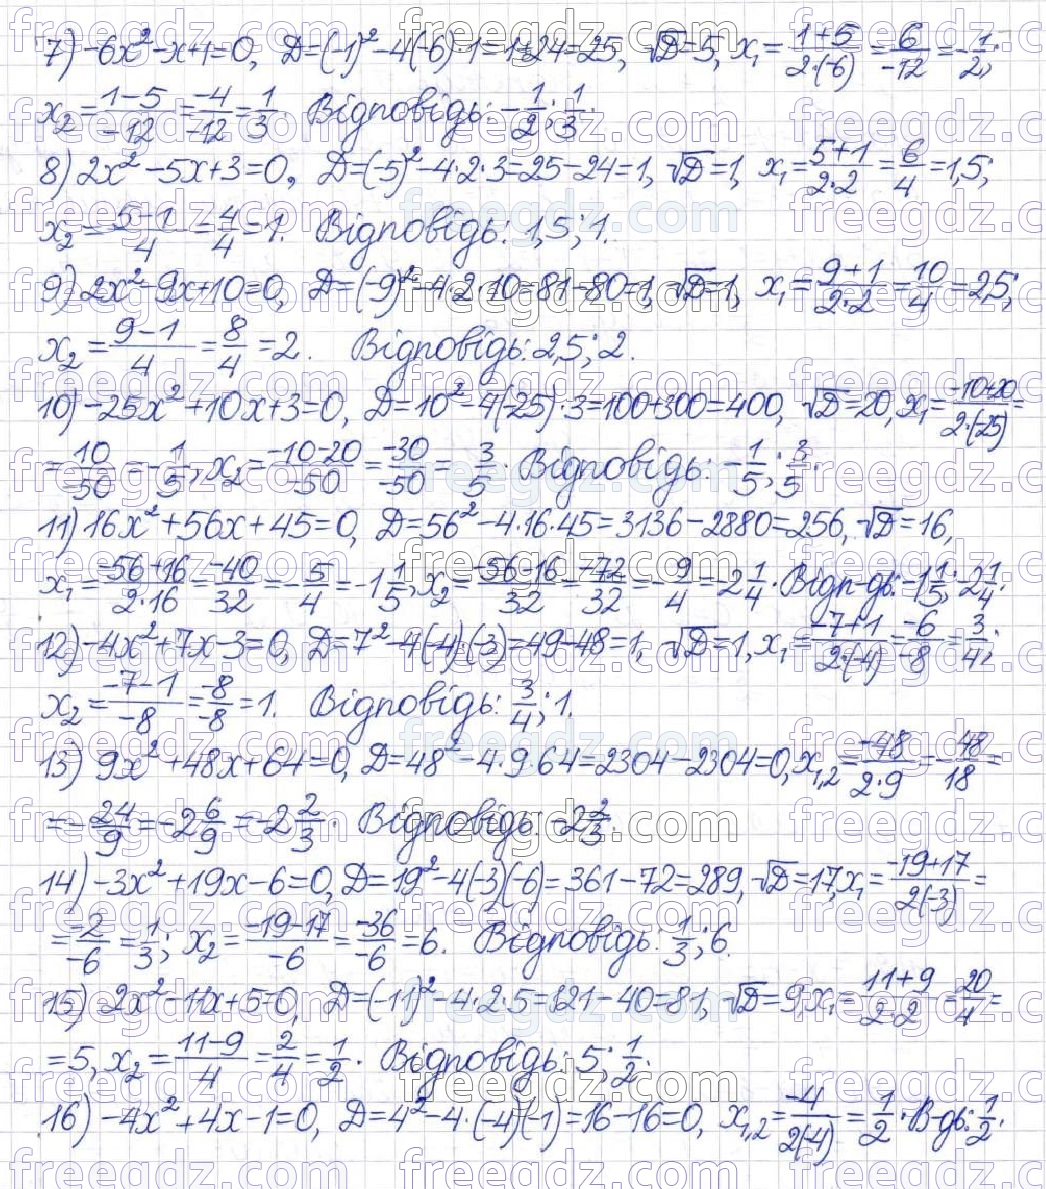 7) -6x² - x + 1 = 0, D = (-1)² - 4(-6)·1 = 1 + 24 = 25, √D = 5, x₁ = (1+5)/(2·(-6)) = 6/-12 = -1/2;
x₂ = (1-5)/-12 = -4/-12 = 1/3. Відповідь: -1/2; 1/3.
8) 2x² - 5x + 3 = 0, D = (-5)² - 4·2·3 = 25 - 24 = 1, √D = 1, x₁ = (5+1)/(2·2) = 6/4 = 1,5;
x₂ = (5-1)/4 = 4/4 = 1. Відповідь: 1,5; 1.
9) 2x² - 9x + 10 = 0, D = (-9)² - 4·2·10 = 81 - 80 = 1, √D = 1, x₁ = (9+1)/(2·2) = 10/4 = 2,5;
x₂ = (9-1)/4 = 8/4 = 2. Відповідь: 2,5; 2.
10) -25x² + 10x + 3 = 0, D = 10² - 4(-25)·3 = 100 + 300 = 400, √D = 20, x₁ = (-10+20)/(2·(-25)) =
= 10/-50 = -1/5, x₂ = (-10-20)/-50 = -30/-50 = 3/5. Відповідь: -1/5; 3/5.
11) 16x² + 56x + 45 = 0, D = 56² - 4·16·45 = 3136 - 2880 = 256, √D = 16,
x₁ = (-56+16)/(2·16) = -40/32 = -5/4 = -1 1/5, x₂ = (-56-16)/32 = -72/32 = -9/4 = -2 1/4. Відп-дь: -1 1/5; -2 1/4.
12) -4x² + 7x - 3 = 0, D = 7² - 4(-4)·(-3) = 49 - 48 = 1, √D = 1, x₁ = (-7+1)/(2·(-4)) = -6/-8 = 3/4;
x₂ = (-7-1)/-8 = -8/-8 = 1. Відповідь: 3/4; 1.
13) 9x² + 48x + 64 = 0, D = 48² - 4·9·64 = 2304 - 2304 = 0, x₁,₂ = -48/(2·9) = -48/18 =
= -24/9 = -2 6/9 = -2 2/3. Відповідь: -2 2/3.
14) -3x² + 19x - 6 = 0, D = 19² - 4(-3)(-6) = 361 - 72 = 289, √D = 17, x₁ = (-19+17)/(2(-3)) =
= -2/-6 = 1/3; x₂ = (-19-17)/-6 = -36/-6 = 6. Відповідь: 1/3; 6.
15) 2x² - 11x + 5 = 0, D = (-11)² - 4·2·5 = 121 - 40 = 81, √D = 9, x₁ = (11+9)/(2·2) = 20/4 =
= 5, x₂ = (11-9)/4 = 2/4 = 1/2. Відповідь: 5; 1/2.
16) -4x² + 4x - 1 = 0, D = 4² - 4·(-4)(-1) = 16 - 16 = 0, x₁,₂ = -4/(2(-4)) = 1/2. В-дь: 1/2.